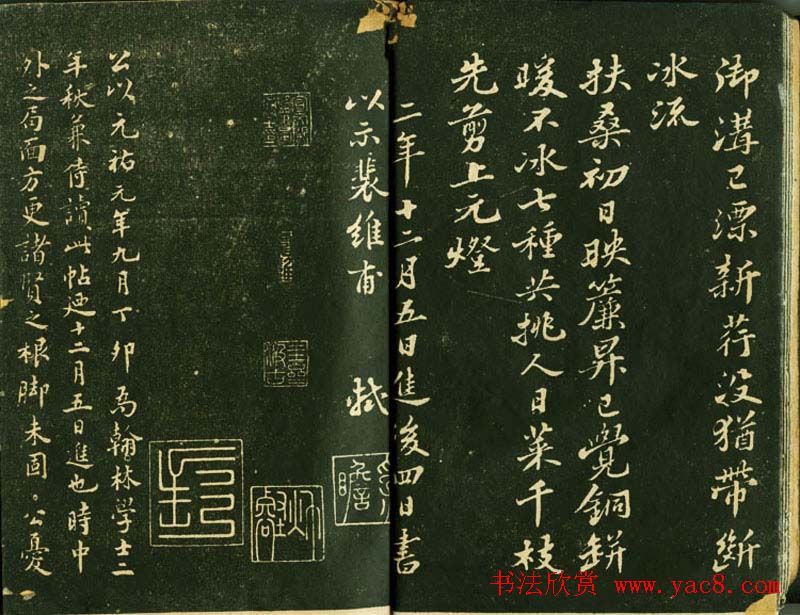 御溝已漂新荇没猶帶斷
冰流
扶桑初日映簾昇已覺銅缾
暖不冰七種共挑人日菜千枝
先剪上元燈
二年十二月五日進後四日書
以示裴維甫　軾
公以元祐元年九月丁卯為翰林學士二
年秋兼侍讀此帖廼十二月五日進也時中
外之局面方更諸賢之根脚未固。公憂
书法欣赏 www.yac8.com